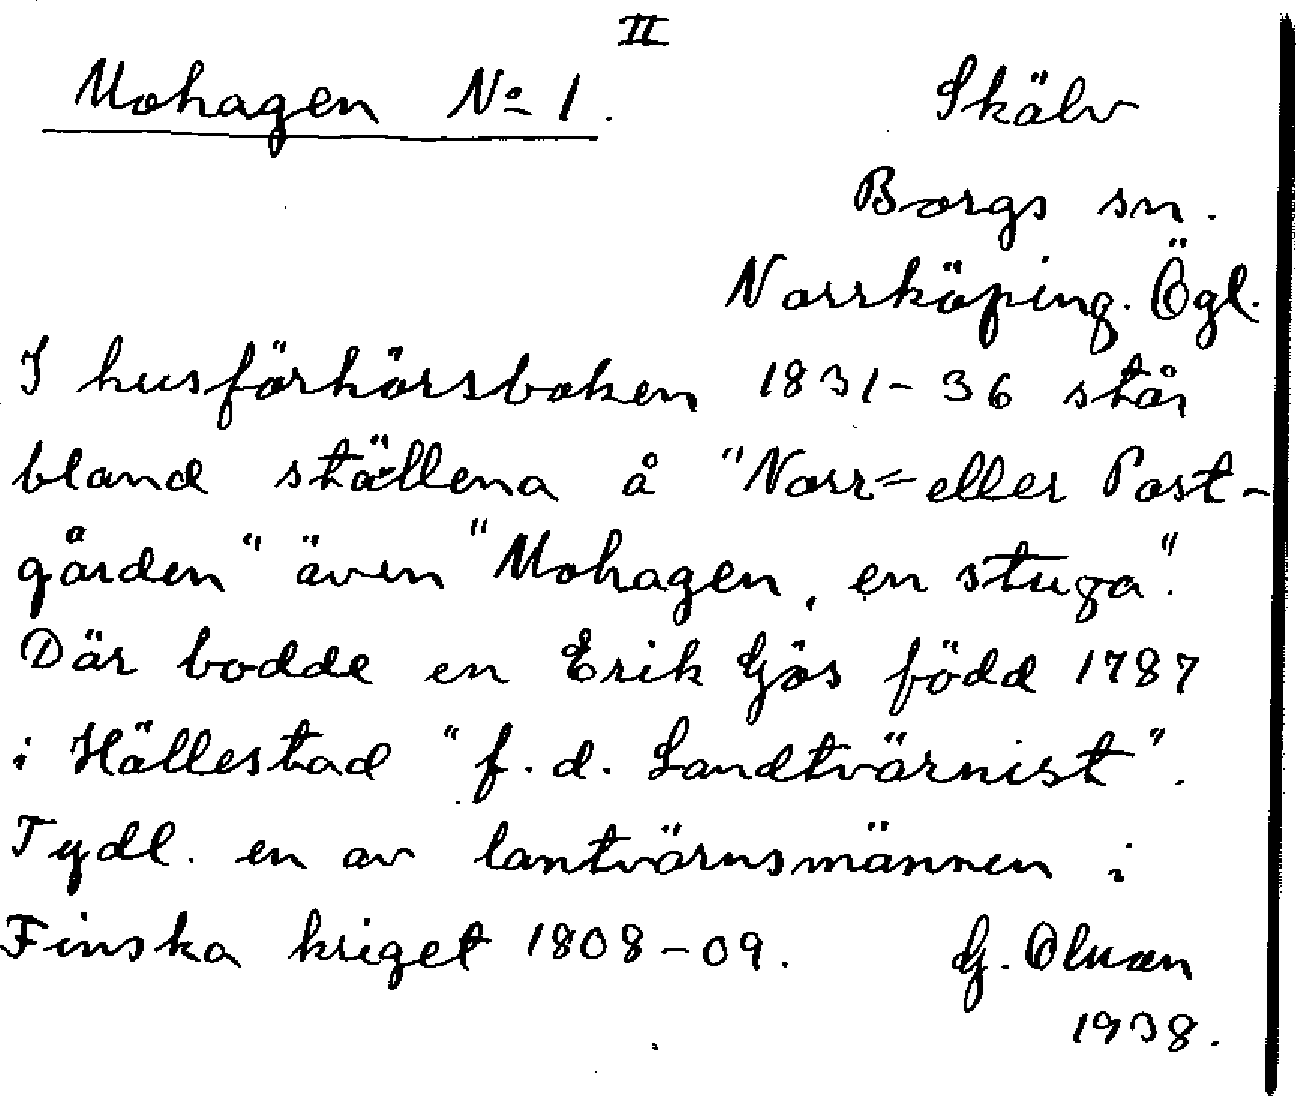 II
Mohagen No 1.
Skälv
Borgs sn.
Norrköping. Ögl.
I husförhörsboken 1831-36 står
bland ställena å "Norr= eller Post-
gården" även "Mohagen, en stuga".
Där bodde en Erik Gös född 1787
i Hällestad "f.d. Landtvärnist".
Tydl. en av lantvärnsmännen i
Finska kriget 1808-09.
G. Olson
1938.